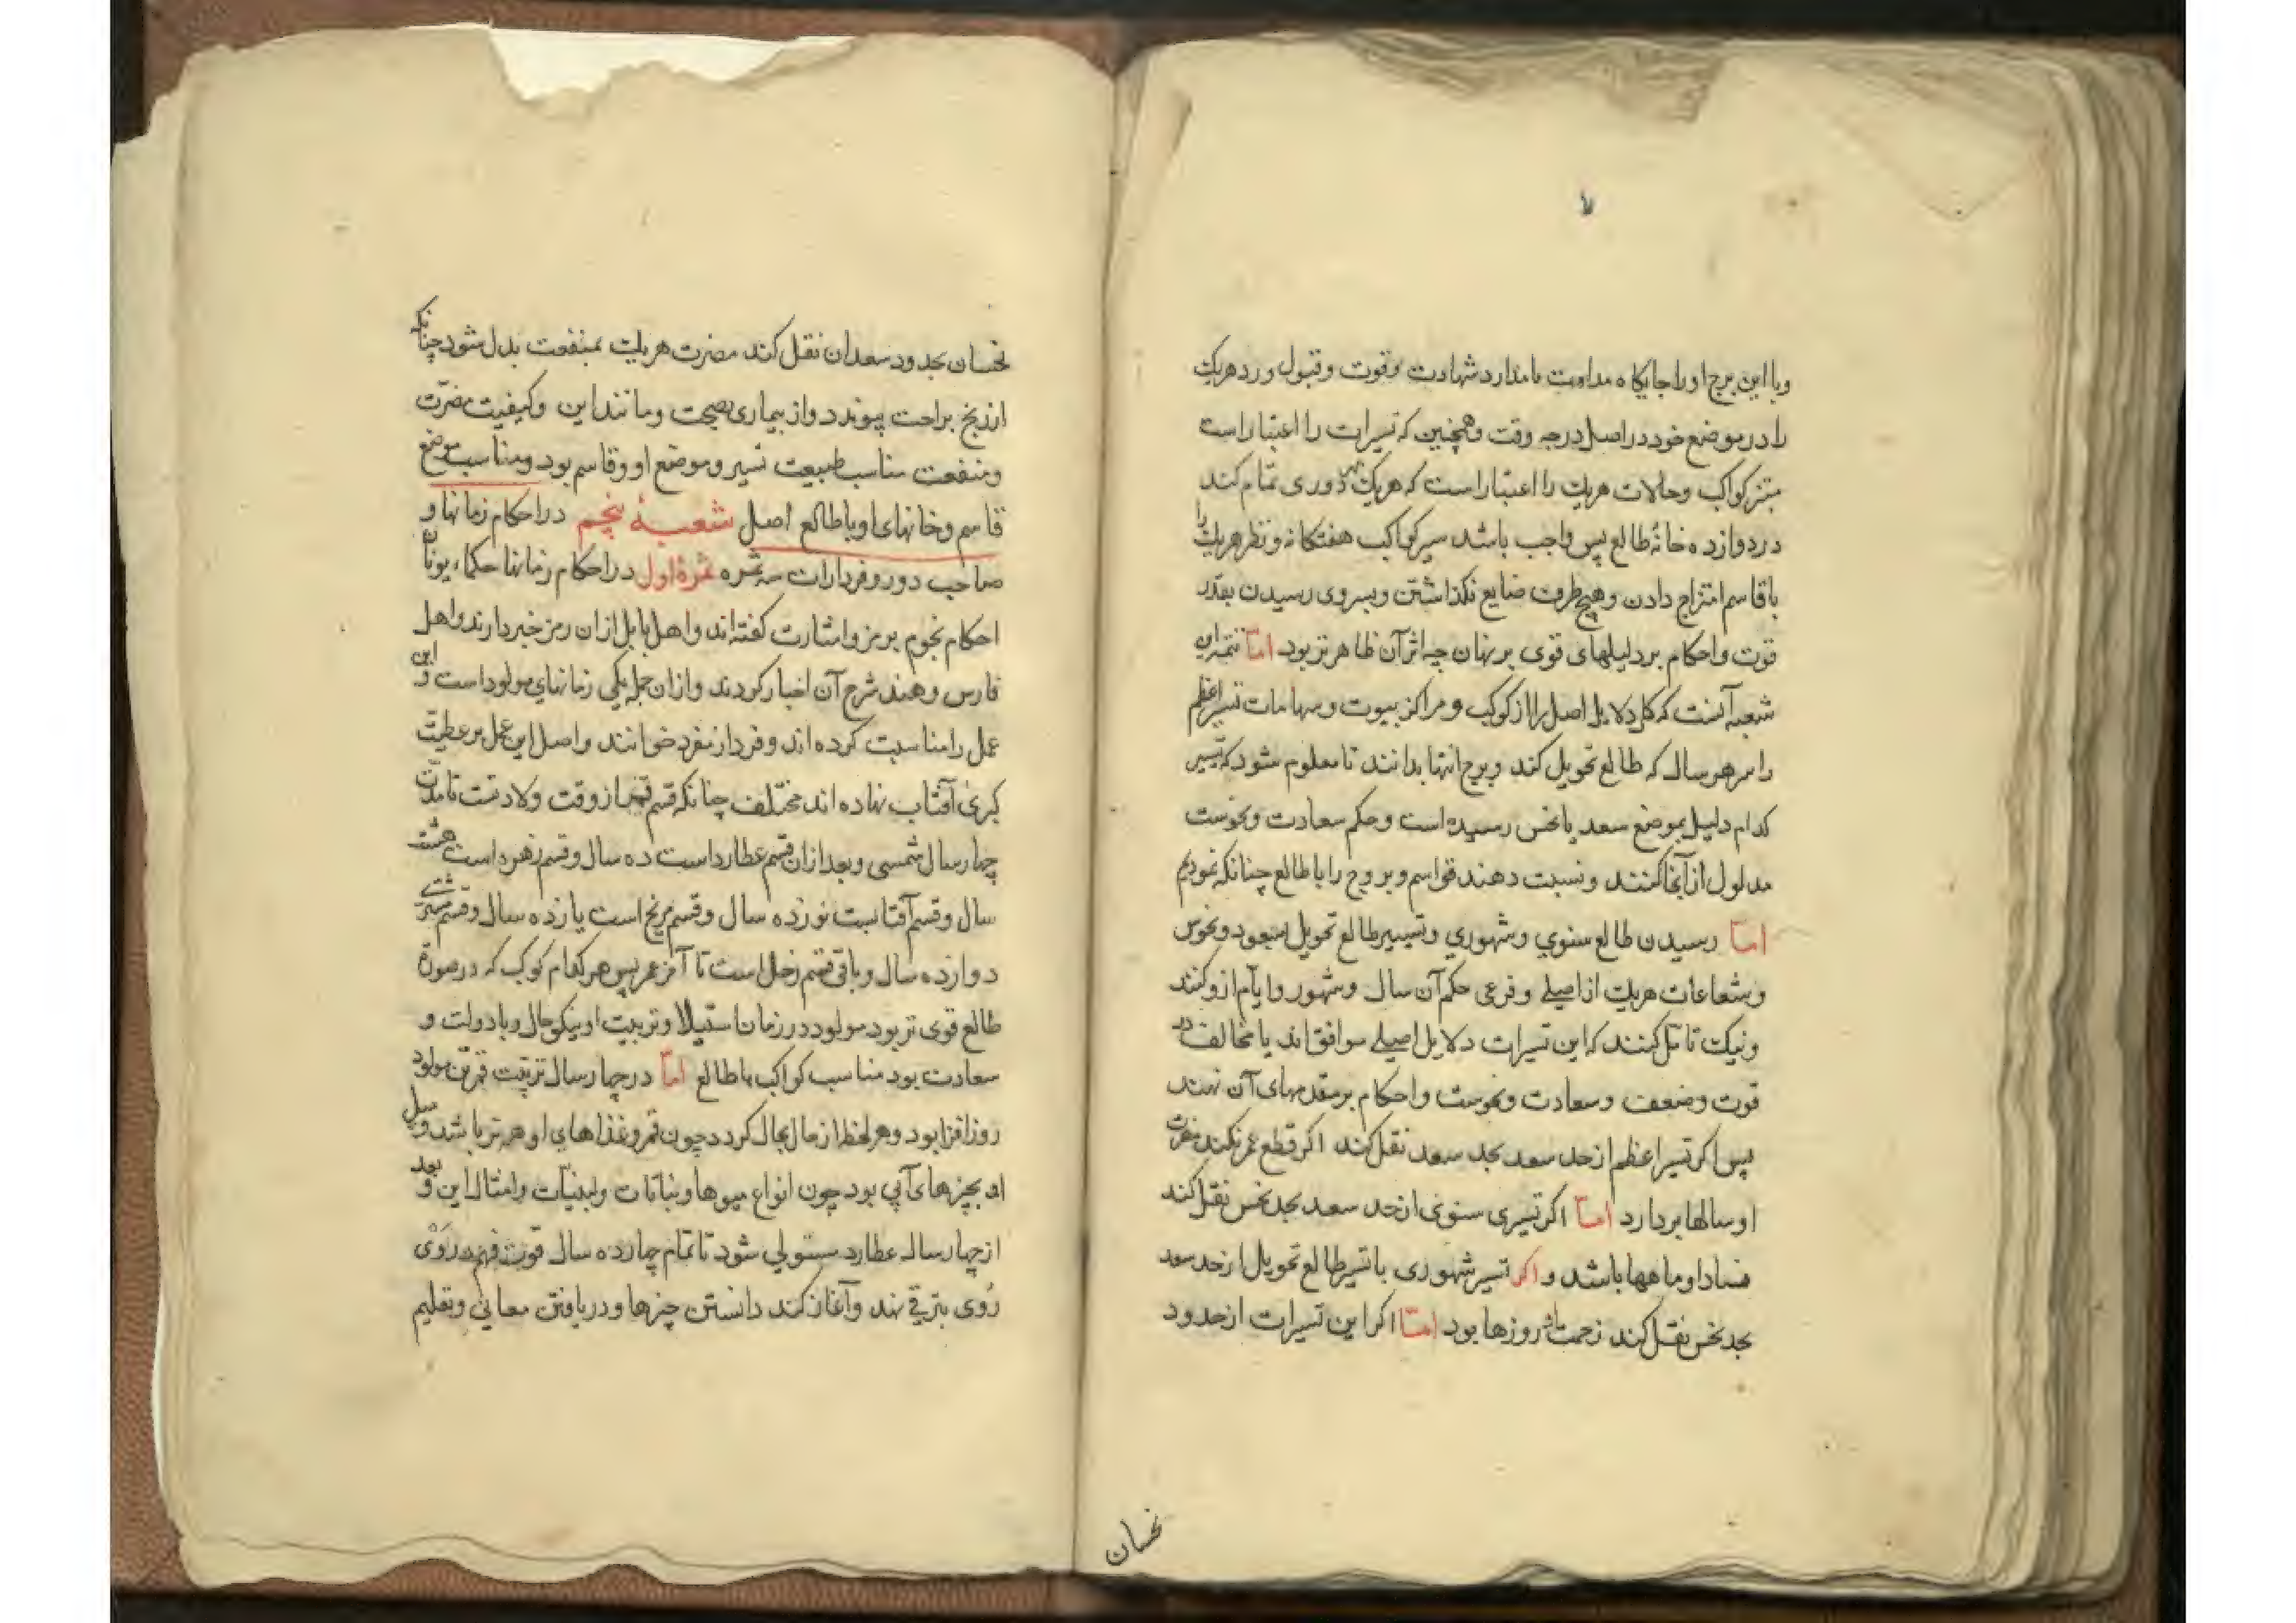 و با این برج او را جایگاه مداومت یا ندارد شهادت و قوت و قبول و رد هریک
را در موضع خود در اصل درجه وقت و همچنین که تسییرات را اعتبار است
کواکب و حالات هریک را اعتبار است که هریک دوری تمام کند
در دوازده خانهٔ طالع پس واجب باشد سیر کواکب هفتگانه و نظر هریک را
با قاسم امتزاج دادن و هیچ طرف ضایع نگذاشتن و بسروی رسیدن بقدر
قوت و احکام بر دلیلهای قوی بر نهان چه اثر آن ظاهرتر بود اما این
شعبه آنست که کل دلایل اصل را از کوکب و مراکز بیوت و سهامات تسییر اعظم
را سر هر سال که طالع تحویل کند و برج انتها بدانند تا معلوم شود که تسییر
کدام دلیل بموضع سعد یا نحس رسیده است و حکم سعادت و نحوست
مدلول از آنجا کنند و نسبت دهند قواسم و بروج را با طالع چنانکه نمودیم
اما رسیدن طالع سنوی و شهوری و تسییر طالع تحویل بسعود و نحوس
و شعاعات هریک از اصلی و فرعی حکم آن سال و شهور و ایام ازو کنند
و نیک تأمل کنند که این تسیرات دلایل اصلی موافق‌اند یا مخالف در
قوت و ضعف و سعادت و نحوست و احکام بر مقدمهای آن نهند
پس اگر تسیر اعظم از حد سعد بحد سعد نقل کند اگر قطع عمر نکند مضرت
او سالها بردارد اما اگر تسیری سنوی از حد سعد بحد نحس نقل کند
فساد او ماهها باشد و اگر تسیر شهوری یا تسیر طالع تحویل از حد سعد
بحد نحس نقل کند زحمت او روزها بود اما اگر این تسیرات از حدود
نحسان
نحسان بحدود سعدان نقل کند مضرت هریک بمنفعت بدل شود چنانکه
از رنج براحت پیوندد و از بیماری بصحت و مانند این و کیفیت مضرّت
و منفعت مناسب طبیعت تسیر و موضع او و قاسم بود و مناسب موضع
قاسم و خانهای او با طالع اصل شعبهٔ پنجم در احکام زمانها و
صاحب دور و فردارات سه ثمره ثمرهٔ اول در احکام زمانها حکماء یونان
احکام نجوم برمز و اشارت گفته‌اند و اهل بابل از ان رمز خبر دارند و اهل
فارس و هند شرح آن اخبار کردند و از ان جمله یکی زمانهای مولود است و این
عمل را مناسبت کرده‌اند و فردار مفرد خوانند و اصل این عمل بر عطیّت
کبری آفتاب نهاده‌اند مختلف چنانکه قسم قمر از وقت ولادتست تا مدّت
چهار سال شمسی و بعد از ان قسم عطارد است ده سال و قسم زهره است هشت
سال و قسم آفتابست نوزده سال و قسم مریخ است یازده سال و قسم مشتری
دوازده سال و باقی قسم زحل است تا آخر عمر پس هر کدام کوکب که در صورة
طالع قوی‌تر بود مولود در زمان استیلا و تربیت او نیکو حال و با دولت و
سعادت بود مناسب کواکب با طالع اما در چهار سال تربیت قمر تن مولود
روزافزا بود و هر لحظه از حال بحال گردد چون قمر و غذاهای او هم تر باشد و میل
او بچیزهای آبی بود چون انواع میوها و نباتات و لبنیّات و امثال این و بعد
از چهار سال عطارد مستولی شود تا تمام چهارده سال قوت فهم در وی
روی بترقی نهد و آغاز کند دانستن چیزها و دریافتن معانی و تعلیم